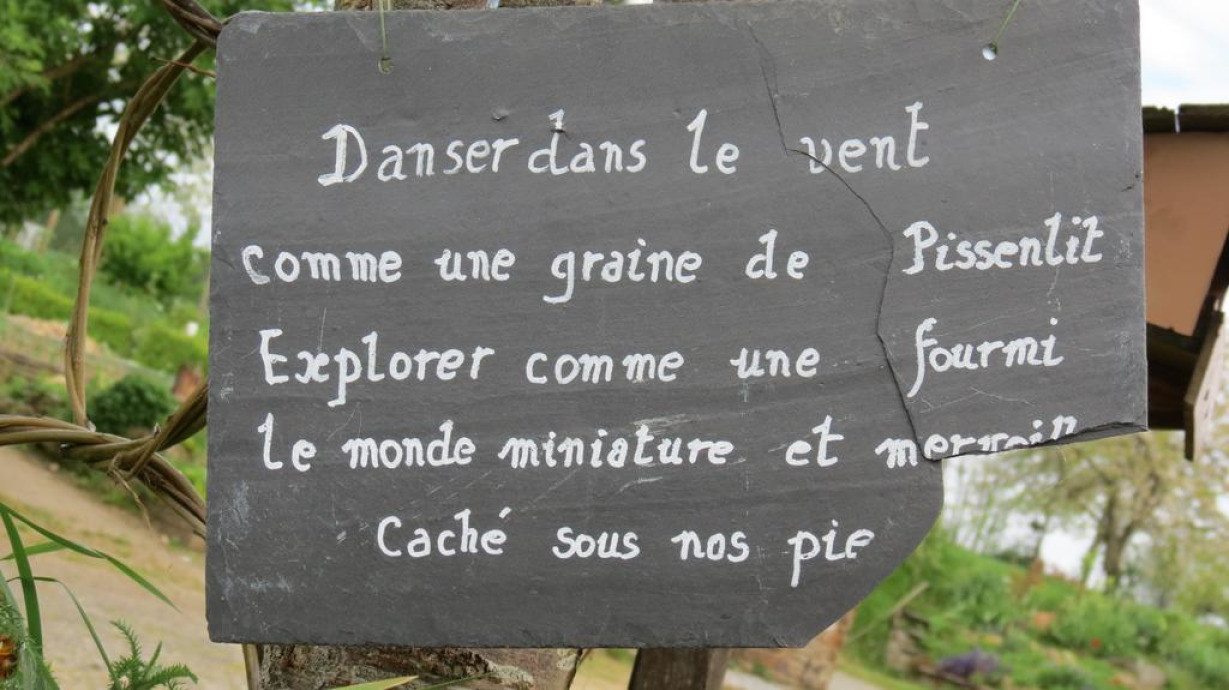 Danser dans le vent
comme une graine de Pissenlit
Explorer comme une fourmi
le monde miniature et
Caché sous nos pie